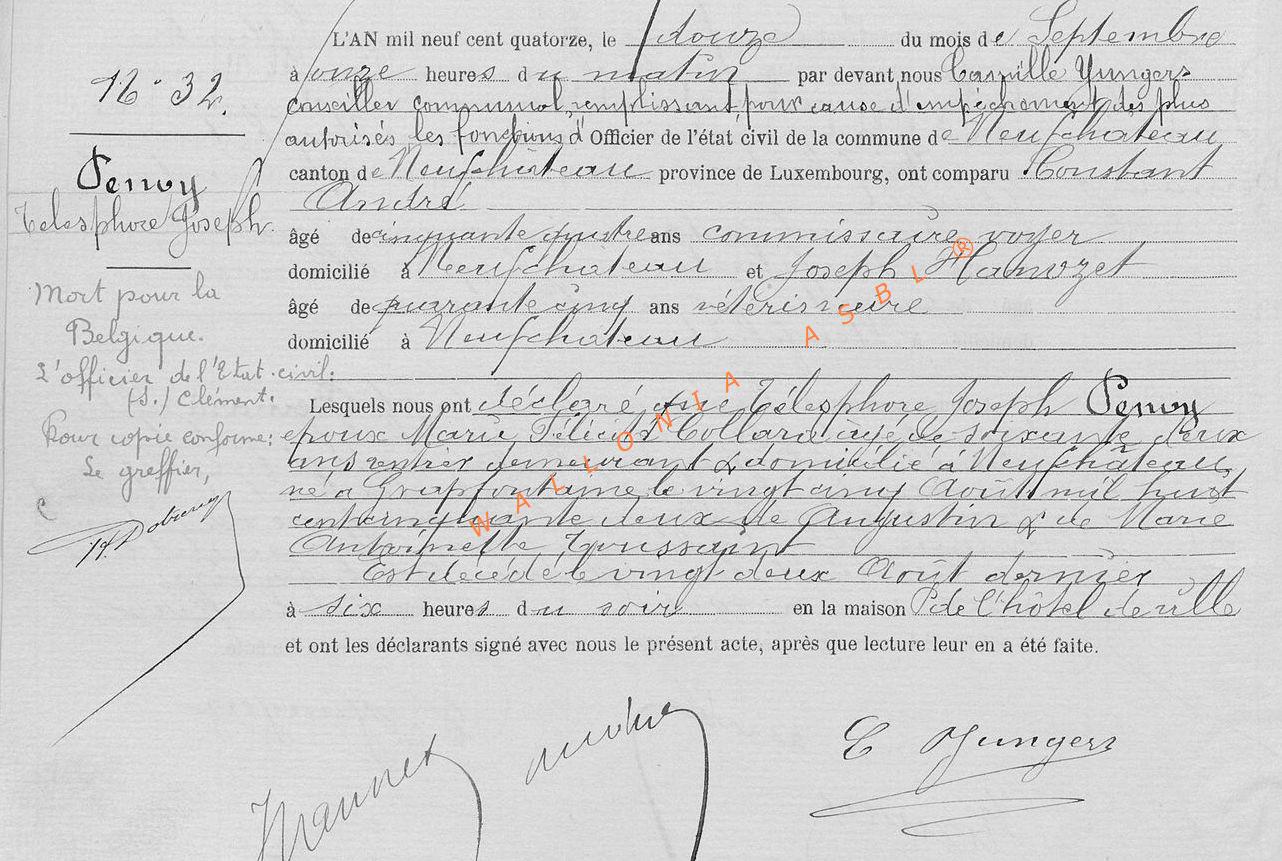 L'AN mil neuf cent quatorze, le douze du mois de Septembre
à onze heures du matin par devant nous Camille Yungers
conseiller communal, remplissant, pour cause d'empêchement des plus
autorisés les fonctions d'Officier de l'état civil de la commune de Neufchâteau
canton de Neufchateau province de Luxembourg, ont comparu Constant
André
âgé de cinquante quatre ans commissaire voyer
domicilié à Neufchateau et Joseph
âgé de quarante cinq ans vétérinaire
domicilié à Neufchateau
Lesquels nous ont déclaré que Télesphore Joseph Penoy
époux Marie Félicité Collard âgé de soixante deux
ans rentier demeurant & domicilié à Neufchâteau,
né à Grapfontaine le vingt cinq Août mil huit
cent cinquante deux de Augustin & de Marie
Antoinette Toussaint
Est décédé le vingt deux Août dernier
à six heures du soir en la maison de l'hôtel de ville
et ont les déclarants signé avec nous le présent acte, après que lecture leur en a été faite.
12 · 32.
Penoy
Télesphore Joseph.
Mort pour la
Belgique.
L'officier de l'Etat-civil:
(S.) Clément.
Pour copie conforme:
Le greffier,
C Yungers
WALLONIA ASBL ®